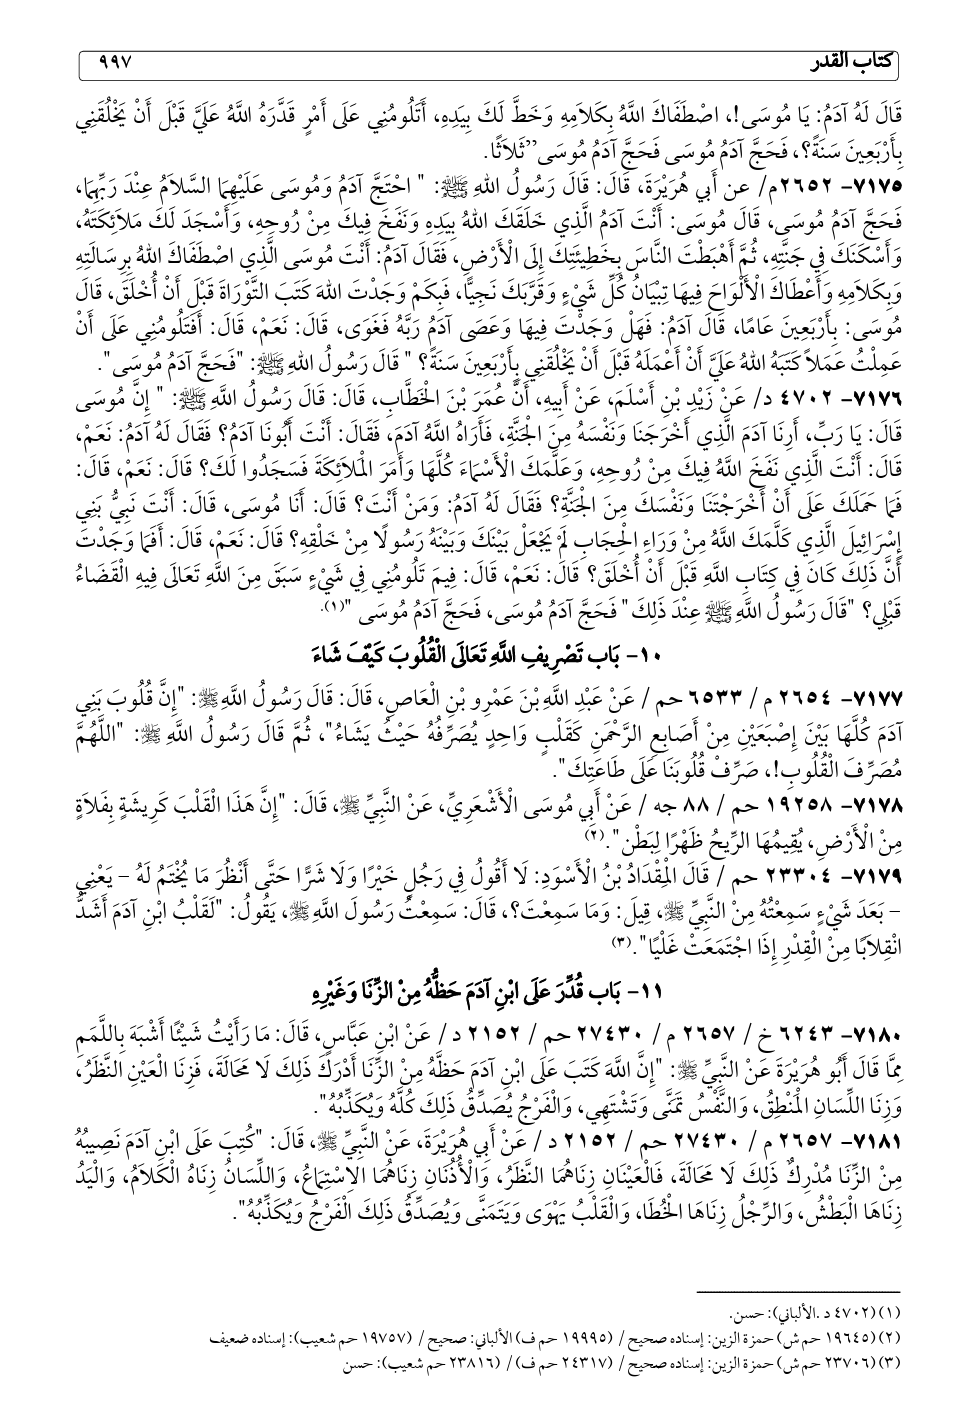 كتاب القدر ٩٩٧
قَالَ لَهُ آدَمُ: يَا مُوسَى!، اصْطَفَاكَ اللَّهُ بِكَلَامِهِ وَخَطَّ لَكَ بِيَدِهِ، أَتَلُومُنِي عَلَى أَمْرٍ قَدَّرَهُ اللَّهُ عَلَيَّ قَبْلَ أَنْ يَخْلُقَنِي
بِأَرْبَعِينَ سَنَةً؟، فَحَجَّ آدَمُ مُوسَى فَحَجَّ آدَمُ مُوسَى”ثَلاَثًا.
٧١٧٥- ٢٦٥٢م/ عن أَبِي هُرَيْرَةَ، قَالَ: قَالَ رَسُولُ اللهِ ﷺ: " احْتَجَّ آدَمُ وَمُوسَى عَلَيْهِمَا السَّلاَمُ عِنْدَ رَبِّهِمَا،
فَحَجَّ آدَمُ مُوسَى، قَالَ مُوسَى: أَنْتَ آدَمُ الَّذِي خَلَقَكَ اللهُ بِيَدِهِ وَنَفَخَ فِيكَ مِنْ رُوحِهِ، وَأَسْجَدَ لَكَ مَلاَئِكَتَهُ،
وَأَسْكَنَكَ فِي جَنَّتِهِ، ثُمَّ أَهْبَطْتَ النَّاسَ بِخَطِيئَتِكَ إِلَى الْأَرْضِ، فَقَالَ آدَمُ: أَنْتَ مُوسَى الَّذِي اصْطَفَاكَ اللهُ بِرِسَالَتِهِ
وَبِكَلاَمِهِ وَأَعْطَاكَ الْأَلْوَاحَ فِيهَا تِبْيَانُ كُلِّ شَيْءٍ وَقَرَّبَكَ نَجِيًّا، فَبِكَمْ وَجَدْتَ اللهَ كَتَبَ التَّوْرَاةَ قَبْلَ أَنْ أُخْلَقَ، قَالَ
مُوسَى: بِأَرْبَعِينَ عَامًا، قَالَ آدَمُ: فَهَلْ وَجَدْتَ فِيهَا وَعَصَى آدَمُ رَبَّهُ فَغَوَى، قَالَ: نَعَمْ، قَالَ: أَفَتَلُومُنِي عَلَى أَنْ
عَمِلْتُ عَمَلاً كَتَبَهُ اللهُ عَلَيَّ أَنْ أَعْمَلَهُ قَبْلَ أَنْ يَخْلُقَنِي بِأَرْبَعِينَ سَنَةً؟ " قَالَ رَسُولُ اللهِ ﷺ: "فَحَجَّ آدَمُ مُوسَى".
٧١٧٦- ٤٧٠٢ د/ عَنْ زَيْدِ بْنِ أَسْلَمَ، عَنْ أَبِيهِ، أَنَّ عُمَرَ بْنَ الْخَطَّابِ، قَالَ: قَالَ رَسُولُ اللَّهِ ﷺ: " إِنَّ مُوسَى
قَالَ: يَا رَبِّ، أَرِنَا آدَمَ الَّذِي أَخْرَجَنَا وَنَفْسَهُ مِنَ الْجَنَّةِ، فَأَرَاهُ اللَّهُ آدَمَ، فَقَالَ: أَنْتَ أَبُونَا آدَمُ؟ فَقَالَ لَهُ آدَمُ: نَعَمْ،
قَالَ: أَنْتَ الَّذِي نَفَخَ اللَّهُ فِيكَ مِنْ رُوحِهِ، وَعَلَّمَكَ الْأَسْمَاءَ كُلَّهَا وَأَمَرَ الْمَلَائِكَةَ فَسَجَدُوا لَكَ؟ قَالَ: نَعَمْ، قَالَ:
فَمَا حَمَلَكَ عَلَى أَنْ أَخْرَجْتَنَا وَنَفْسَكَ مِنَ الْجَنَّةِ؟ فَقَالَ لَهُ آدَمُ: وَمَنْ أَنْتَ؟ قَالَ: أَنَا مُوسَى، قَالَ: أَنْتَ نَبِيُّ بَنِي
إِسْرَائِيلَ الَّذِي كَلَّمَكَ اللَّهُ مِنْ وَرَاءِ الْحِجَابِ لَمْ يَجْعَلْ بَيْنَكَ وَبَيْنَهُ رَسُولًا مِنْ خَلْقِهِ؟ قَالَ: نَعَمْ، قَالَ: أَفَمَا وَجَدْتَ
أَنَّ ذَلِكَ كَانَ فِي كِتَابِ اللَّهِ قَبْلَ أَنْ أُخْلَقَ؟ قَالَ: نَعَمْ، قَالَ: فِيمَ تَلُومُنِي فِي شَيْءٍ سَبَقَ مِنَ اللَّهِ تَعَالَى فِيهِ الْقَضَاءُ
قَبْلِي؟ "قَالَ رَسُولُ اللَّهِ ﷺ عِنْدَ ذَلِكَ" فَحَجَّ آدَمُ مُوسَى، فَحَجَّ آدَمُ مُوسَى "(١).
١٠- بَاب تَصْرِيفِ اللَّهِ تَعَالَى الْقُلُوبَ كَيْفَ شَاءَ
٧١٧٧- ٢٦٥٤ م/ ٦٥٣٣ حم / عَنْ عَبْدِ اللَّهِ بْنَ عَمْرِو بْنِ الْعَاصِ، قَالَ: قَالَ رَسُولُ اللَّهِ ﷺ: "إِنَّ قُلُوبَ بَنِي
آدَمَ كُلَّهَا بَيْنَ إِصْبَعَيْنِ مِنْ أَصَابِعِ الرَّحْمَنِ كَقَلْبٍ وَاحِدٍ يُصَرِّفُهُ حَيْثُ يَشَاءُ"، ثُمَّ قَالَ رَسُولُ اللَّهِ ﷺ: "اللَّهُمَّ
مُصَرِّفَ الْقُلُوبِ!، صَرِّفْ قُلُوبَنَا عَلَى طَاعَتِكَ".
٧١٧٨- ١٩٢٥٨ حم / ٨٨ جه / عَنْ أَبِي مُوسَى الْأَشْعَرِيِّ، عَنْ النَّبِيِّ ﷺ، قَالَ: "إِنَّ هَذَا الْقَلْبَ كَرِيشَةٍ بِفَلَاةٍ
مِنْ الْأَرْضِ، يُقِيمُهَا الرِّيحُ ظَهْرًا لِبَطْنٍ ".(٢)
٧١٧٩- ٢٣٣٠٤ حم / قَالَ الْمِقْدَادُ بْنُ الْأَسْوَدِ: لَا أَقُولُ فِي رَجُلٍ خَيْرًا وَلَا شَرًّا حَتَّى أَنْظُرَ مَا يُخْتَمُ لَهُ – يَعْنِي
– بَعْدَ شَيْءٍ سَمِعْتُهُ مِنْ النَّبِيِّ ﷺ، قِيلَ: وَمَا سَمِعْتَ؟، قَالَ: سَمِعْتُ رَسُولَ اللَّهِ ﷺ، يَقُولُ: "لَقَلْبُ ابْنِ آدَمَ أَشَدُّ
انْقِلَابًا مِنْ الْقِدْرِ إِذَا اجْتَمَعَتْ غَلْيًا".(٣)
١١- بَاب قُدِّرَ عَلَى ابْنِ آدَمَ حَظُّهُ مِنْ الزِّنَا وَغَيْرِهِ
٧١٨٠- ٦٢٤٣ خ / ٢٦٥٧ م/ ٢٧٤٣٠ حم / ٢١٥٢ د / عَنْ ابْنِ عَبَّاسٍ، قَالَ: مَا رَأَيْتُ شَيْئًا أَشْبَهَ بِاللَّمَمِ
مِمَّا قَالَ أَبُو هُرَيْرَةَ عَنْ النَّبِيِّ ﷺ: "إِنَّ اللَّهَ كَتَبَ عَلَى ابْنِ آدَمَ حَظَّهُ مِنْ الزِّنَا أَدْرَكَ ذَلِكَ لَا مَحَالَةَ، فَزِنَا الْعَيْنِ النَّظَرُ،
وَزِنَا اللِّسَانِ الْمَنْطِقُ، وَالنَّفْسُ تَمَنَّى وَتَشْتَهِي، وَالْفَرْجُ يُصَدِّقُ ذَلِكَ كُلَّهُ وَيُكَذِّبُهُ".
٧١٨١- ٢٦٥٧ م/ ٢٧٤٣٠ حم / ٢١٥٢ د/ عَنْ أَبِي هُرَيْرَةَ، عَنْ النَّبِيِّ ﷺ، قَالَ: "كُتِبَ عَلَى ابْنِ آدَمَ نَصِيبُهُ
مِنْ الزِّنَا مُدْرِكٌ ذَلِكَ لَا مَحَالَةَ، فَالْعَيْنَانِ زِنَاهُمَا النَّظَرُ، وَالْأُذُنَانِ زِنَاهُمَا الِاسْتِمَاعُ، وَاللِّسَانُ زِنَاهُ الْكَلَامُ، وَالْيَدُ
زِنَاهَا الْبَطْشُ، وَالرِّجْلُ زِنَاهَا الْخُطَا، وَالْقَلْبُ يَهْوَى وَيَتَمَنَّى وَيُصَدِّقُ ذَلِكَ الْفَرْجُ وَيُكَذِّبُهُ".
(١) (٤٧٠٢ د .الألباني): حسن.
(٢) (١٩٦٤٥ حم ش) حمزة الزين: إسناده صحيح / (١٩٩٩٥ حم ف) الألباني: صحيح / (١٩٧٥٧ حم شعيب): إسناده ضعيف
(٣) (٢٣٧٠٦ حم ش) حمزة الزين: إسناده صحيح / (٢٤٣١٧ حم ف)/ (٢٣٨١٦ حم شعيب): حسن